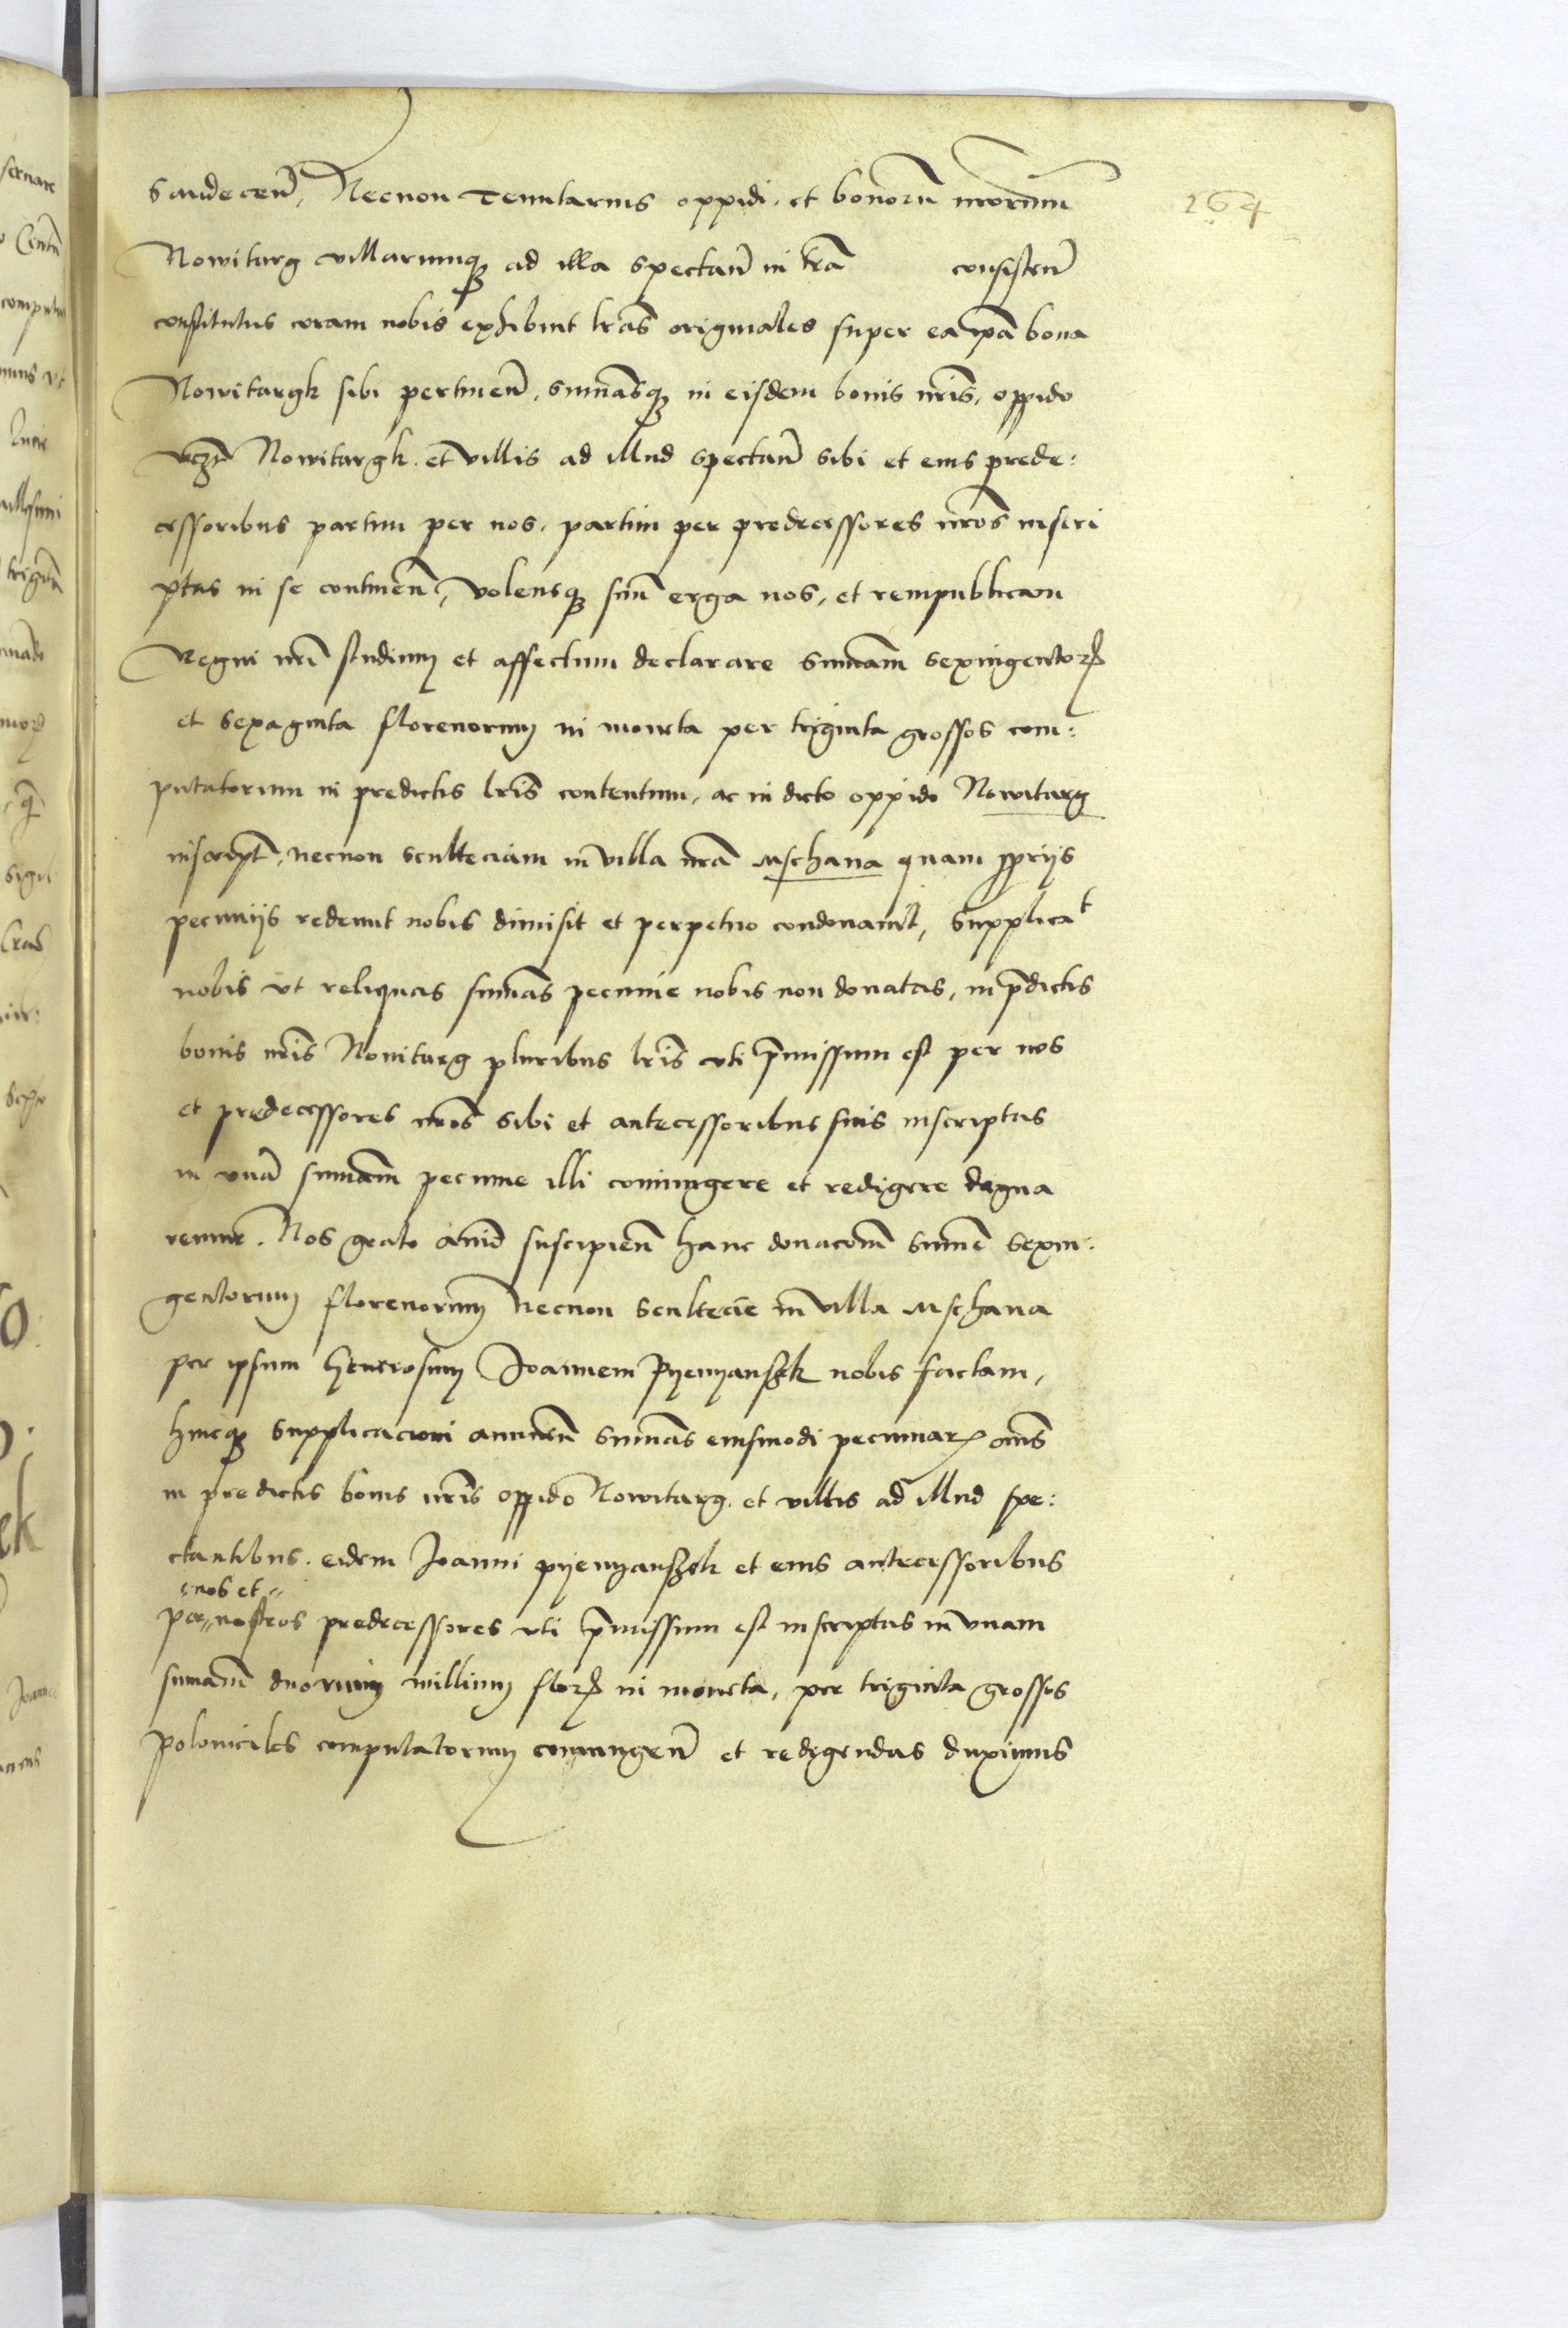 164
Sandeceñ, Necnon Tenutarius oppidi et bonorũ nrorum
Nowitarg villarumq̃ ad illa spectañ in trã consisteñ
constitutus coram nobis exhibuit lras̃ originales super ea ip̃a bona
Nowitargk sibi pertineñ, sum̃asq̃ in eisdem bonis nrĩs, oppido
vcz̃t Nowitargk et villis ad illud spectañ sibi et eius prede:
cessoribus partim per nos, partim per predecessores nrõs inscri
ptas in se contineñ, volensq̃ suũ erga nos, et rempublicam
Regni nrĩ studium et affectum declarare summam sexingentoꝝ
et sexaginta florenorum in moneta per triginta grossos com:
putatorum in predictis lrĩs contentam, ac in dicto oppido Nowitarg
inscript̃, necnon sculteciam in villa nrã Mschana quam pp̃riis
pecuniis redemit nobis dimisit et perpetuo condonauit, supplicat
nobis vt reliquas sum̃as pecunie nobis non donatas, in p̃dictis
bonis nrĩs Nowitarg pluribus lrĩs vti p̃missum est per nos
et predecessores nrõs sibi et antecessoribus suis inscriptas
in vnã sum̃am pecunie illi coniungere et redigere digna
remur. Nos grato anĩo suscipieñ hanc donacõm sum̃e sexin:
gentorum florenorum Necnon scultecie in villa Mschana
per ipsum Generosum Joannem Pyenyanszk nobis factam,
huicq̃ supplicacioni annueñ sum̃as eiusmodi pecuniaꝝ om̃s
in predictis bonis nrĩs oppido Nowitarg et villis ad illud spe:
ctantibus eidem Joanni pyenyanszk et eius antecessoribus
nos et
per nostros predecessores vti p̃missum est inscriptas in vnam
sum̃am duorum millium floꝝ in moneta, per triginta grossos
polonicales computatorum coniungeñ et redigendas duximus